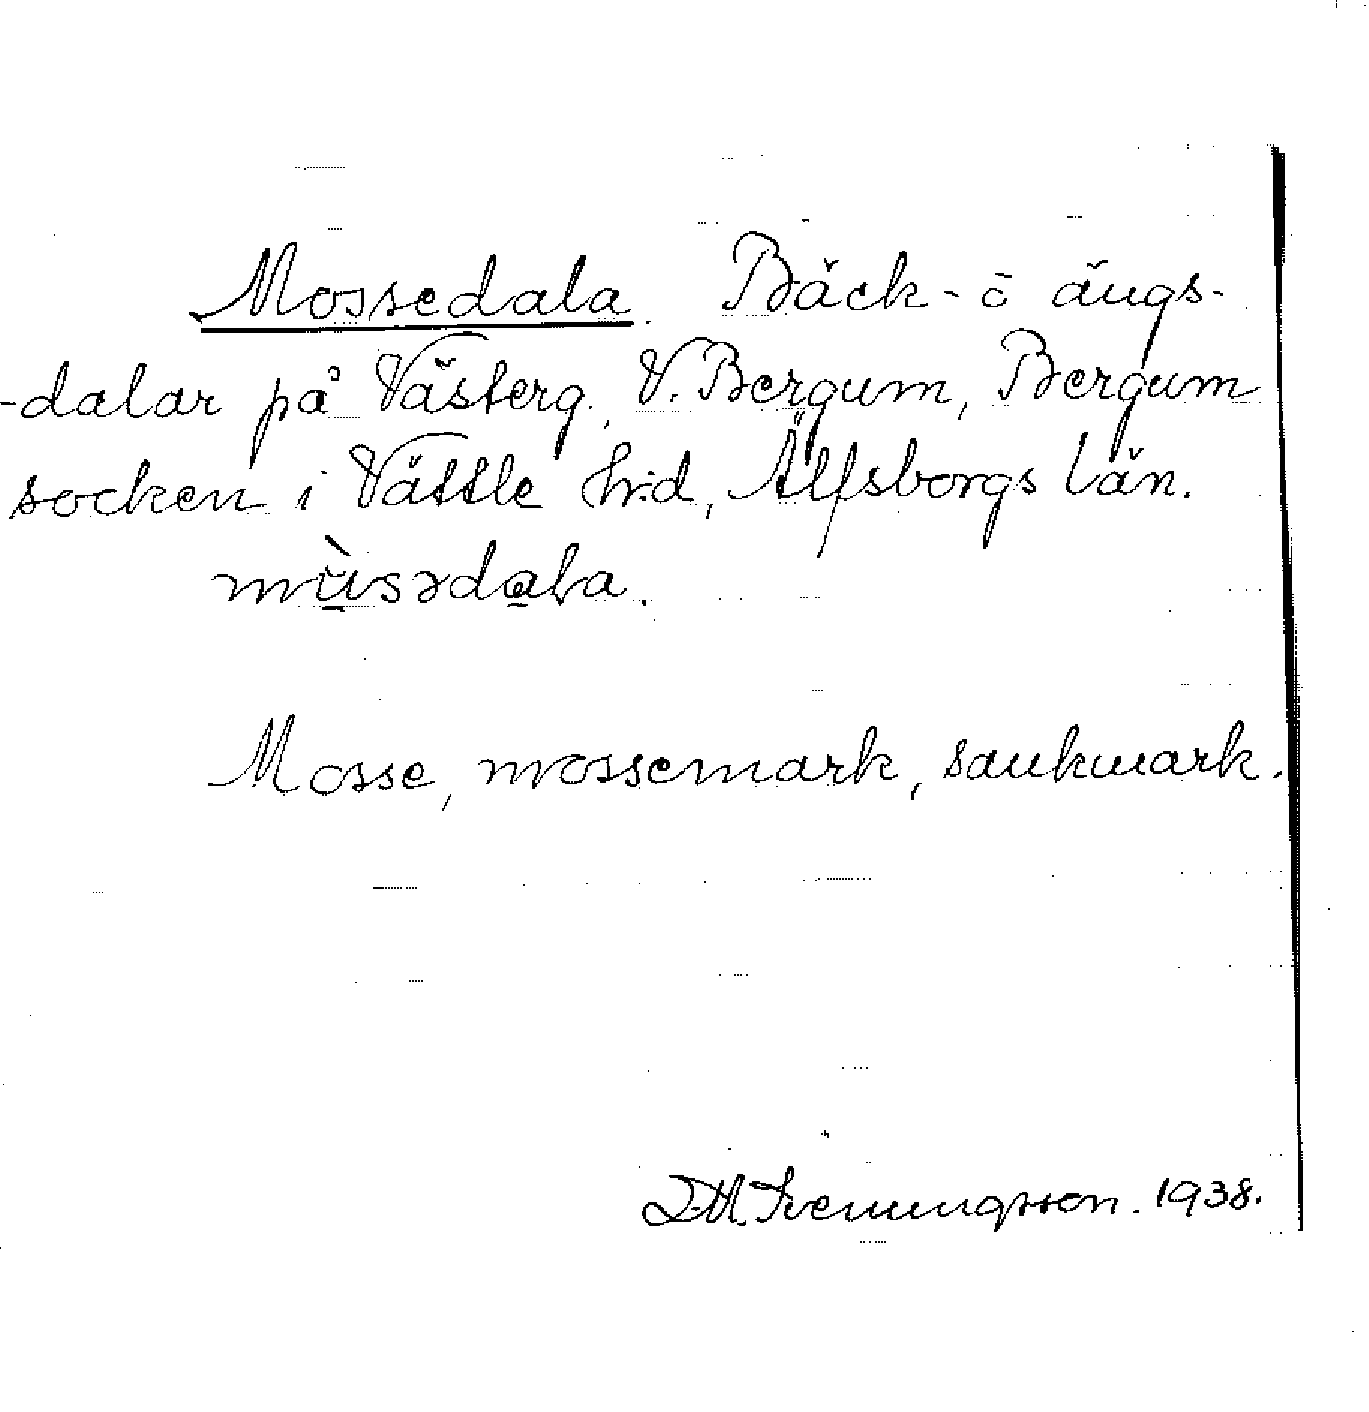 Mossedala. Bäck- o ängs-
-dalar på Västerg., V. Bergum, Bergum
socken i Vättle h:d, Älfsborgs län.
mùsədala.
Mosse, mossemark, sankmark.
Svenningsson. 1938.